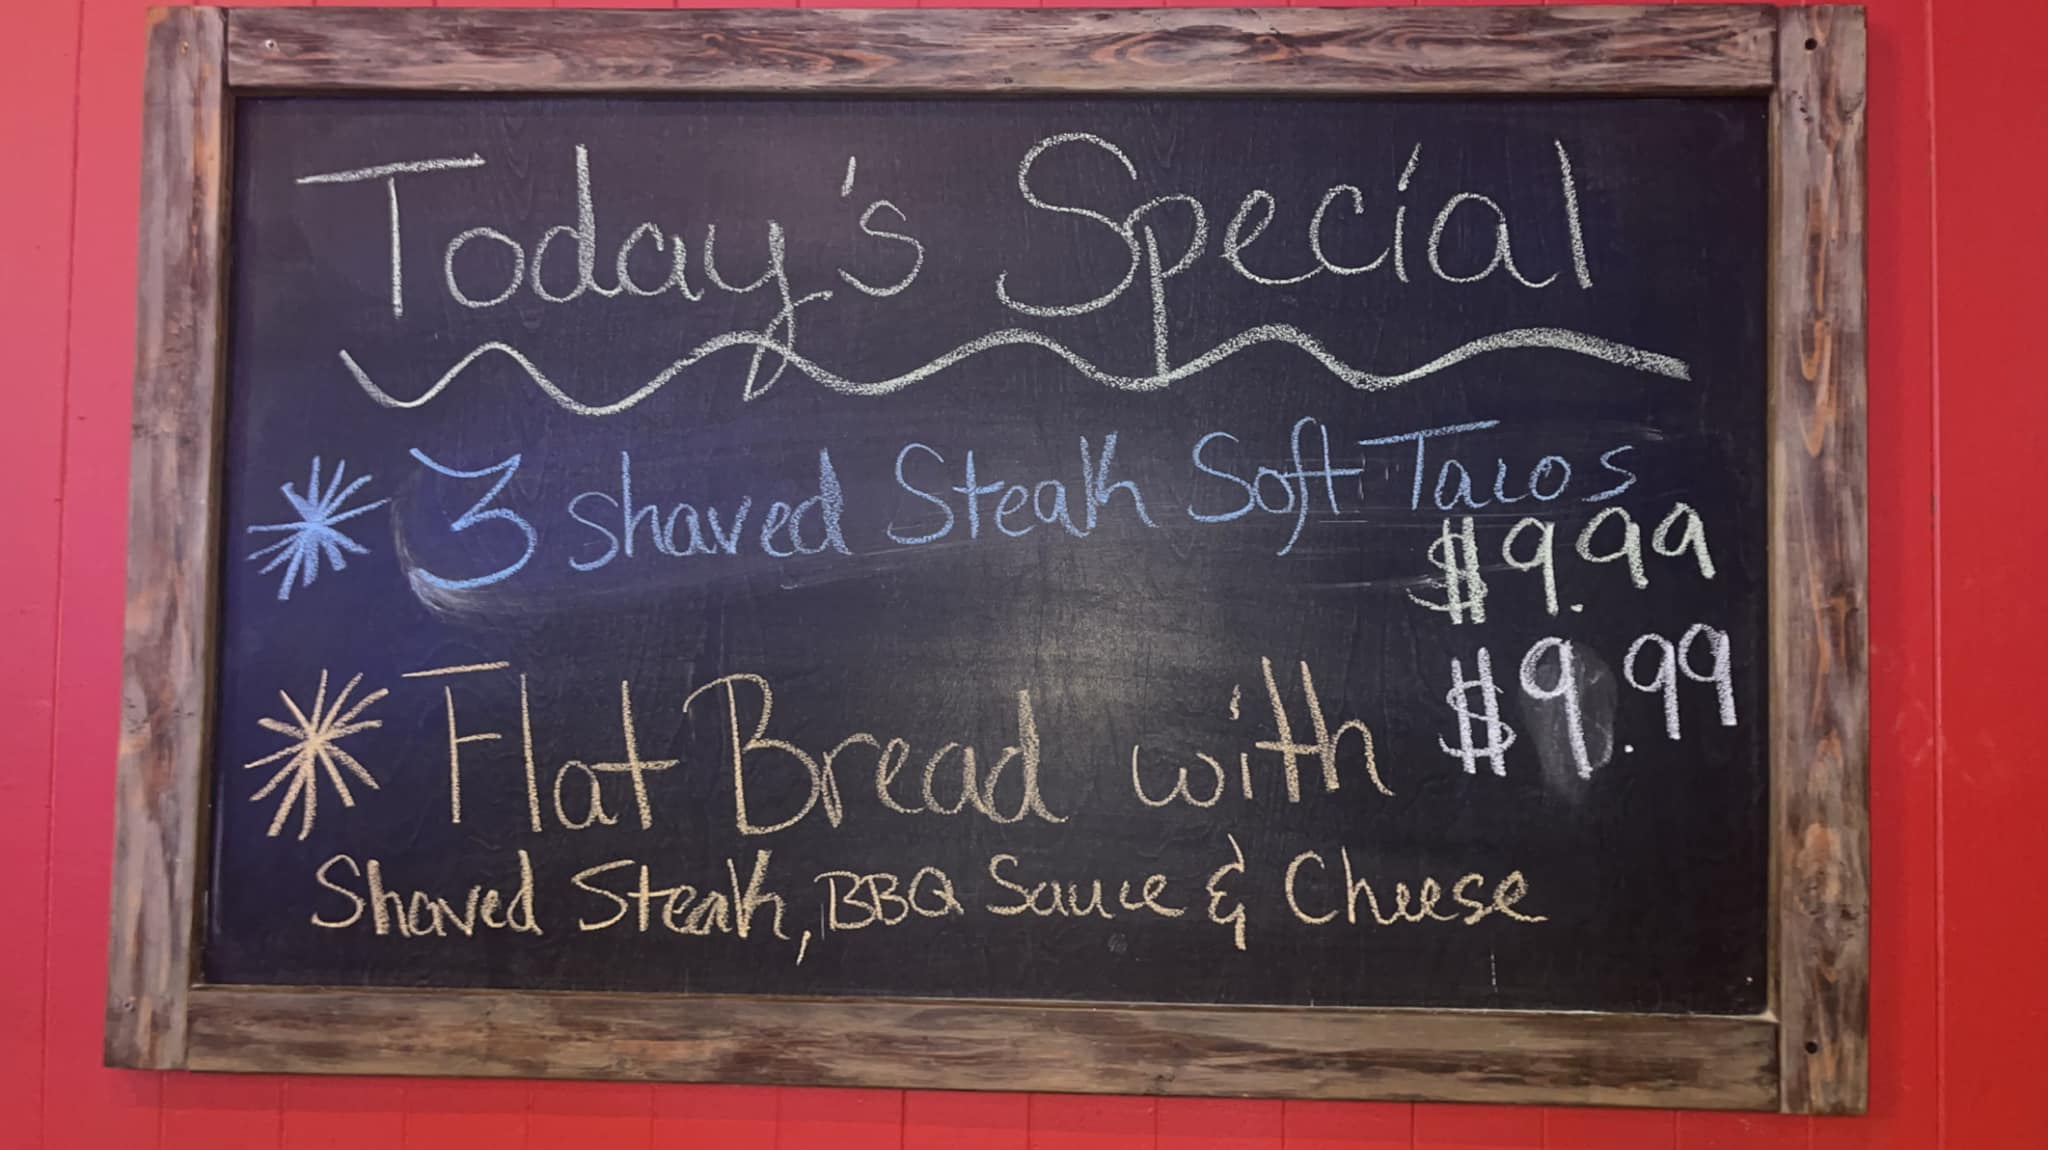 Today's Special
3 shaved Steak Soft Tacos
$9.99
Flat Bread with $9.99
Shaved Steak, BBQ Sauce & Cheese